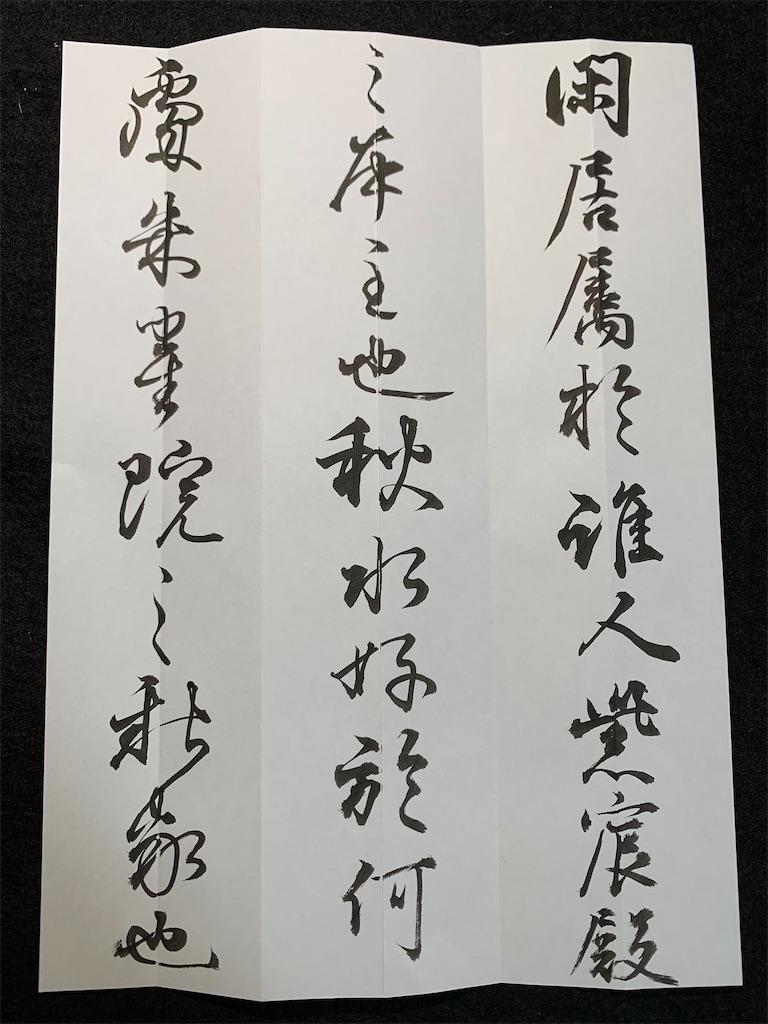 閑居属於誰人紫宸殿
之本主也秋水好於何
處朱雀院之新家也